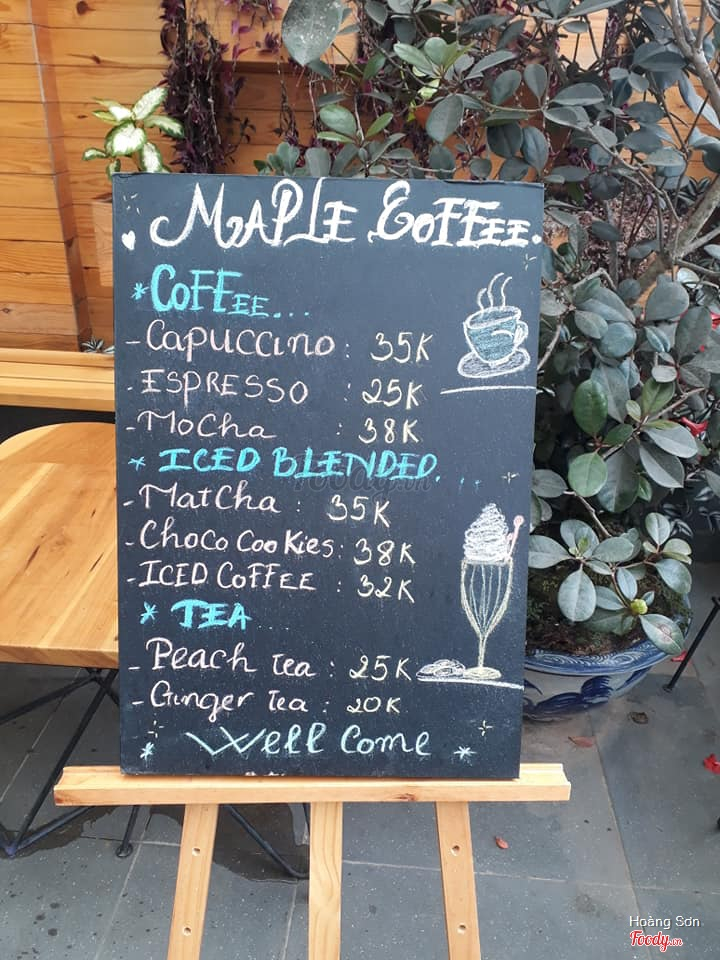 MAPLE COFFEE.
*COFFEE...
-Capuccino: 35K
-ESPRESSO : 25K
-Mocha : 38K
* ICED BLENDED...
-Matcha: 35K
-Choco Cookies: 38K
-ICED COFFEE : 32K
* TEA
-Peach tea : 25K
-Ginger tea : 20K
* Well Come *
Hoàng Sơn
Foody.vn